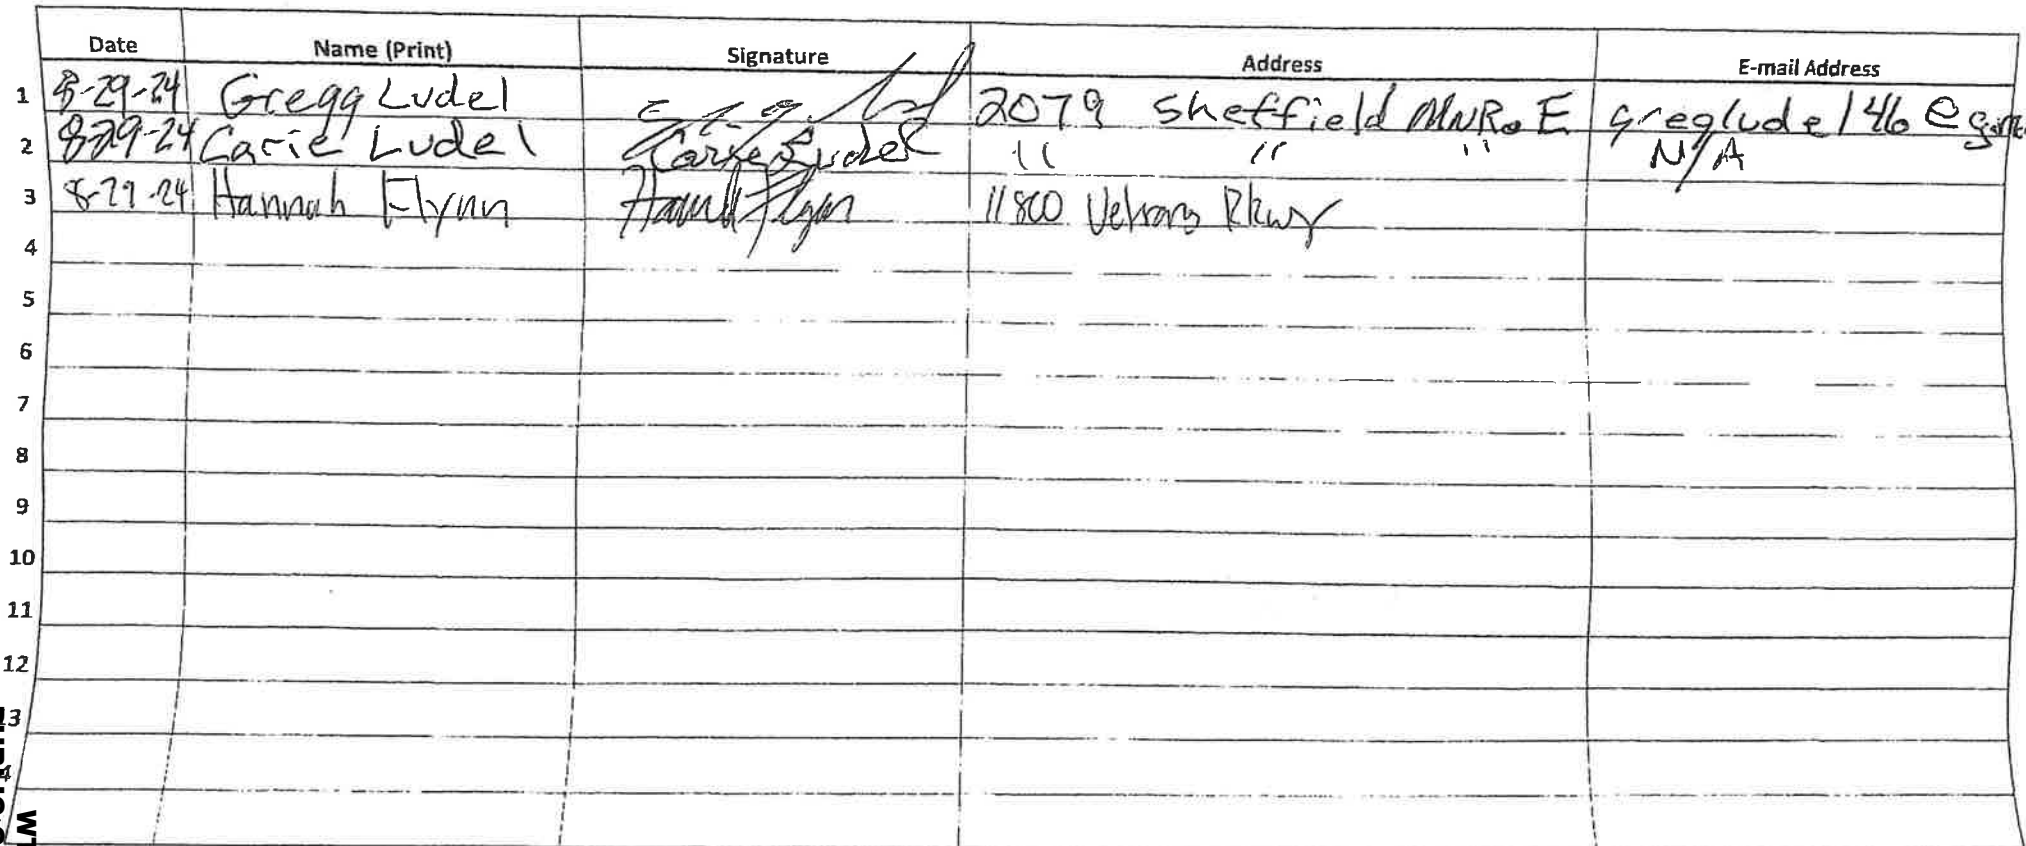 Date Name (Print) Signature Address E-mail Address
1 8-29-24 Gregg Ludel 2079 Sheffield MNR. E greglude146@
2 8-29-24 Carie Ludel Carie Ludel " " " N/A
3 8-29-24 Hannah Flynn Hannah Flynn 11800 Pkwy
4
5
6
7
8
9
10
11
12
13
4
W